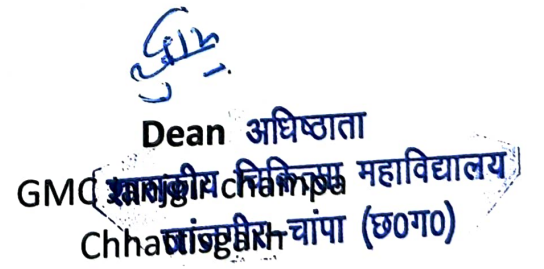 Dean अधिष्ठाता
GMC Janjgir champa शासकीय चिकित्सा महाविद्यालय
Chhattisgarh जांजगीर-चांपा (छ०ग०)